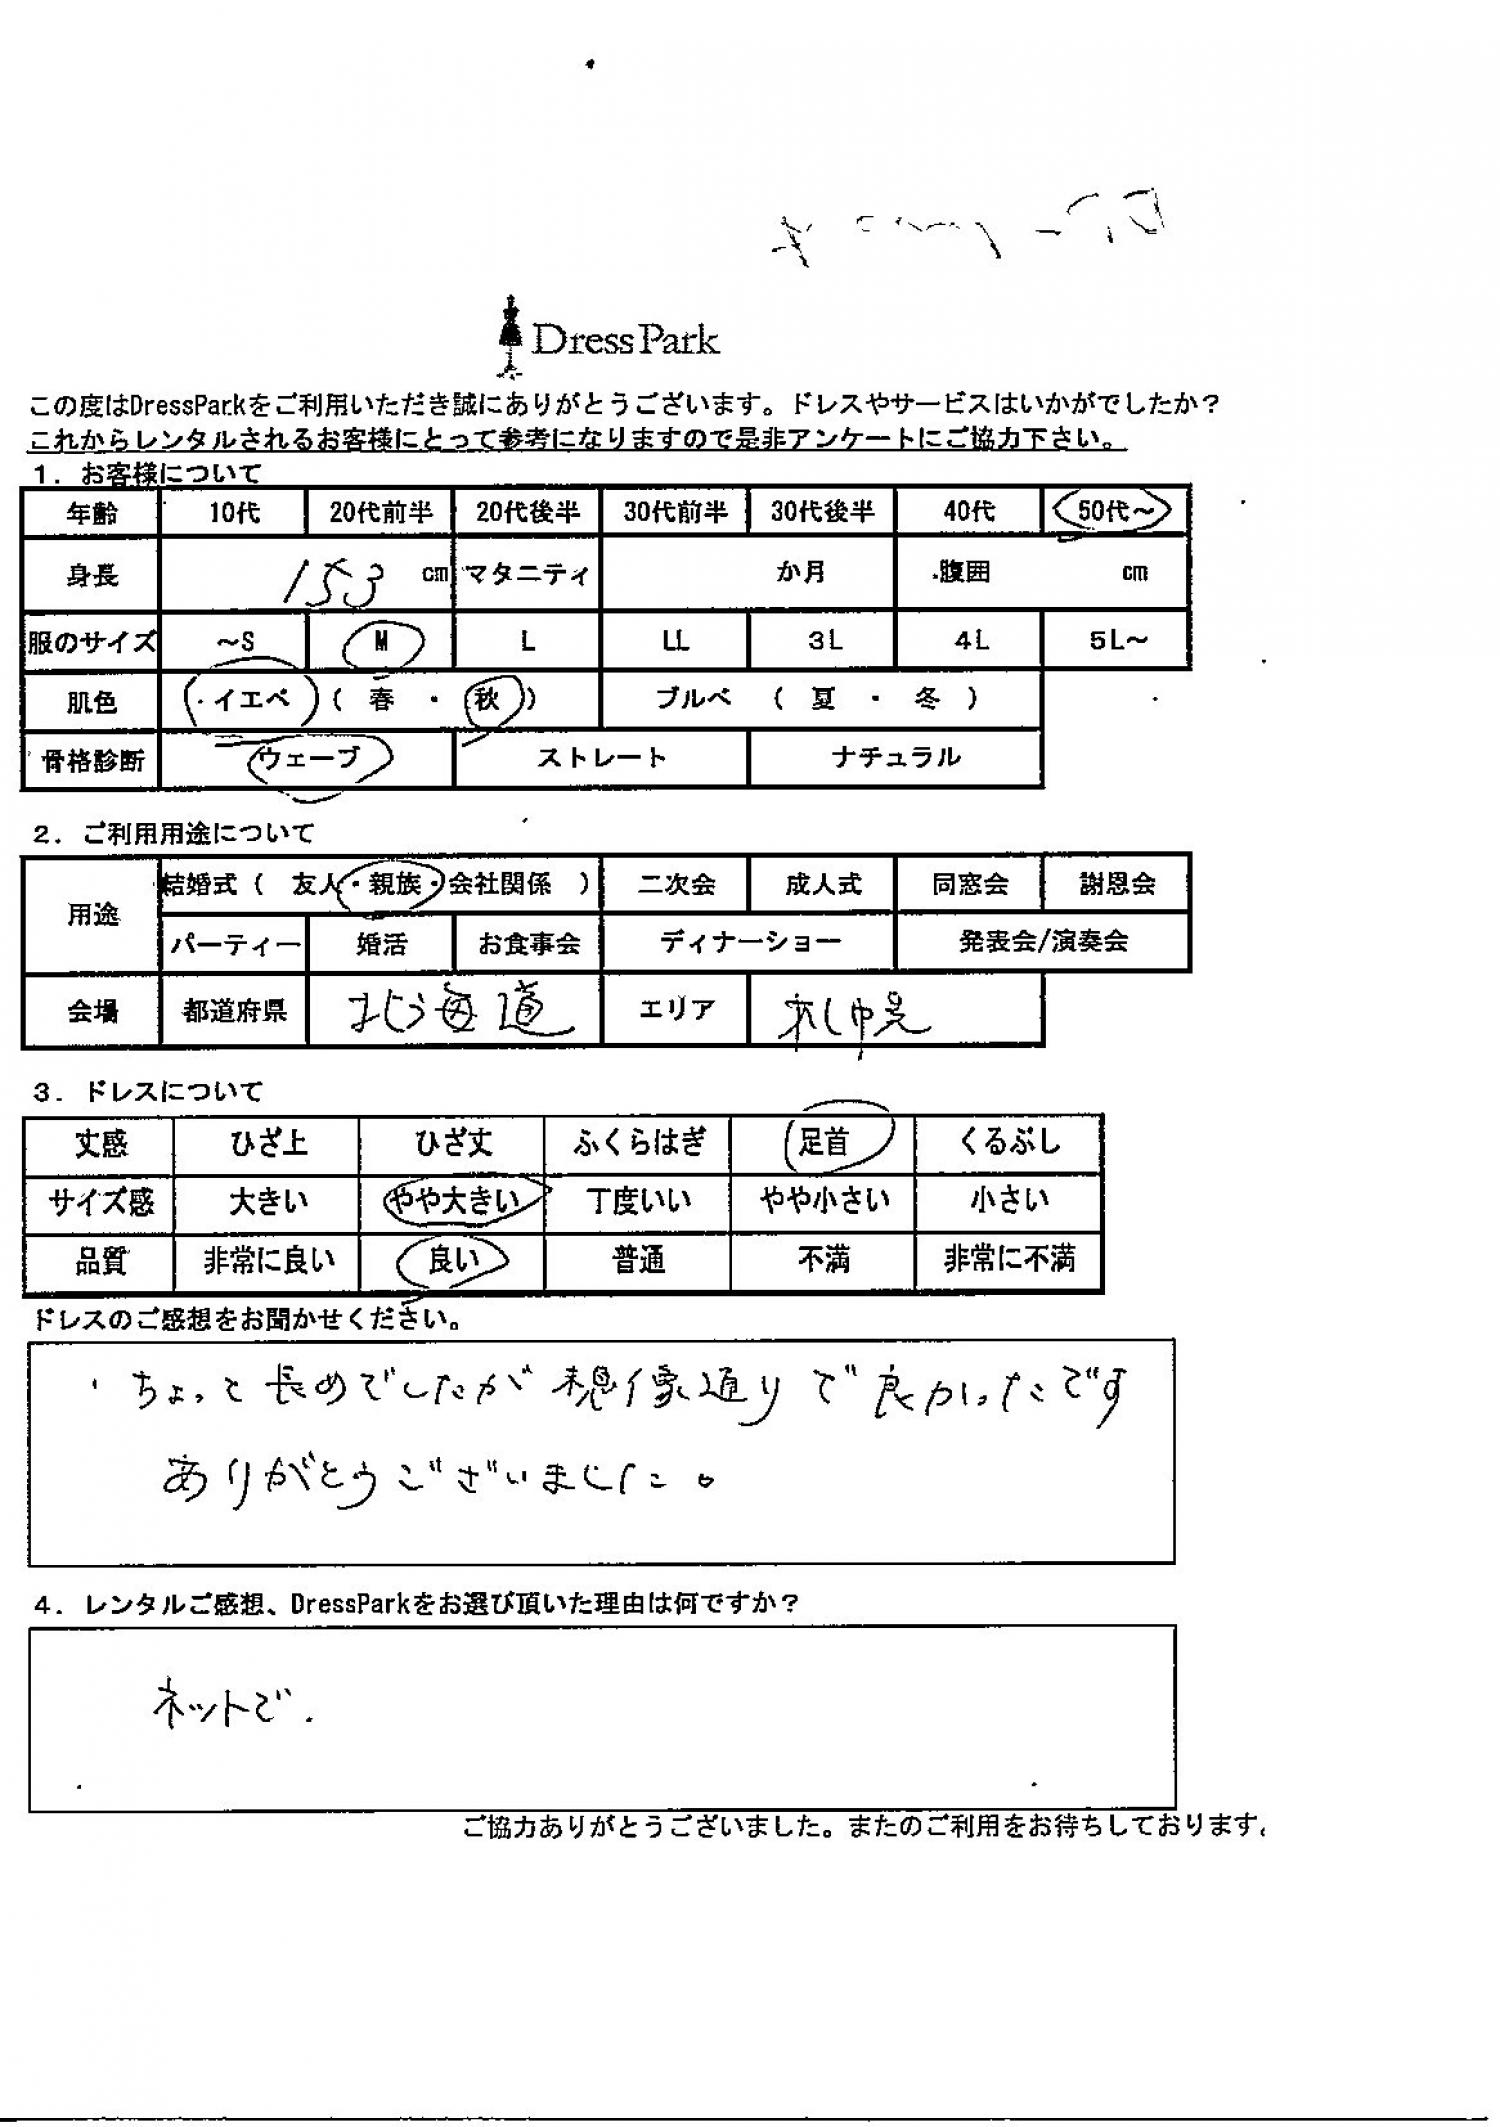 DressPark
この度はDressParkをご利用いただき誠にありがとうございます。ドレスやサービスはいかがでしたか？
これからレンタルされるお客様にとって参考になりますので是非アンケートにご協力下さい。
1．お客様について
年齢 10代 20代前半 20代後半 30代前半 30代後半 40代 50代～
身長 153 cm マタニティ か月 腹囲 cm
服のサイズ ～S M L LL 3L 4L 5L～
肌色 イエベ （ 春 ・ 秋 ） ブルベ （ 夏 ・ 冬 ）
骨格診断 ウェーブ ストレート ナチュラル
2．ご利用用途について
用途 結婚式（ 友人・親族・会社関係 ） 二次会 成人式 同窓会 謝恩会
パーティー 婚活 お食事会 ディナーショー 発表会/演奏会
会場 都道府県 北海道 エリア 札幌
3．ドレスについて
丈感 ひざ上 ひざ丈 ふくらはぎ 足首 くるぶし
サイズ感 大きい やや大きい 丁度いい やや小さい 小さい
品質 非常に良い 良い 普通 不満 非常に不満
ドレスのご感想をお聞かせください。
ちょっと長めでしたが想像通りで良かったです
ありがとうございました。
4．レンタルご感想、DressParkをお選び頂いた理由は何ですか？
ネットで．
ご協力ありがとうございました。またのご利用をお待ちしております。